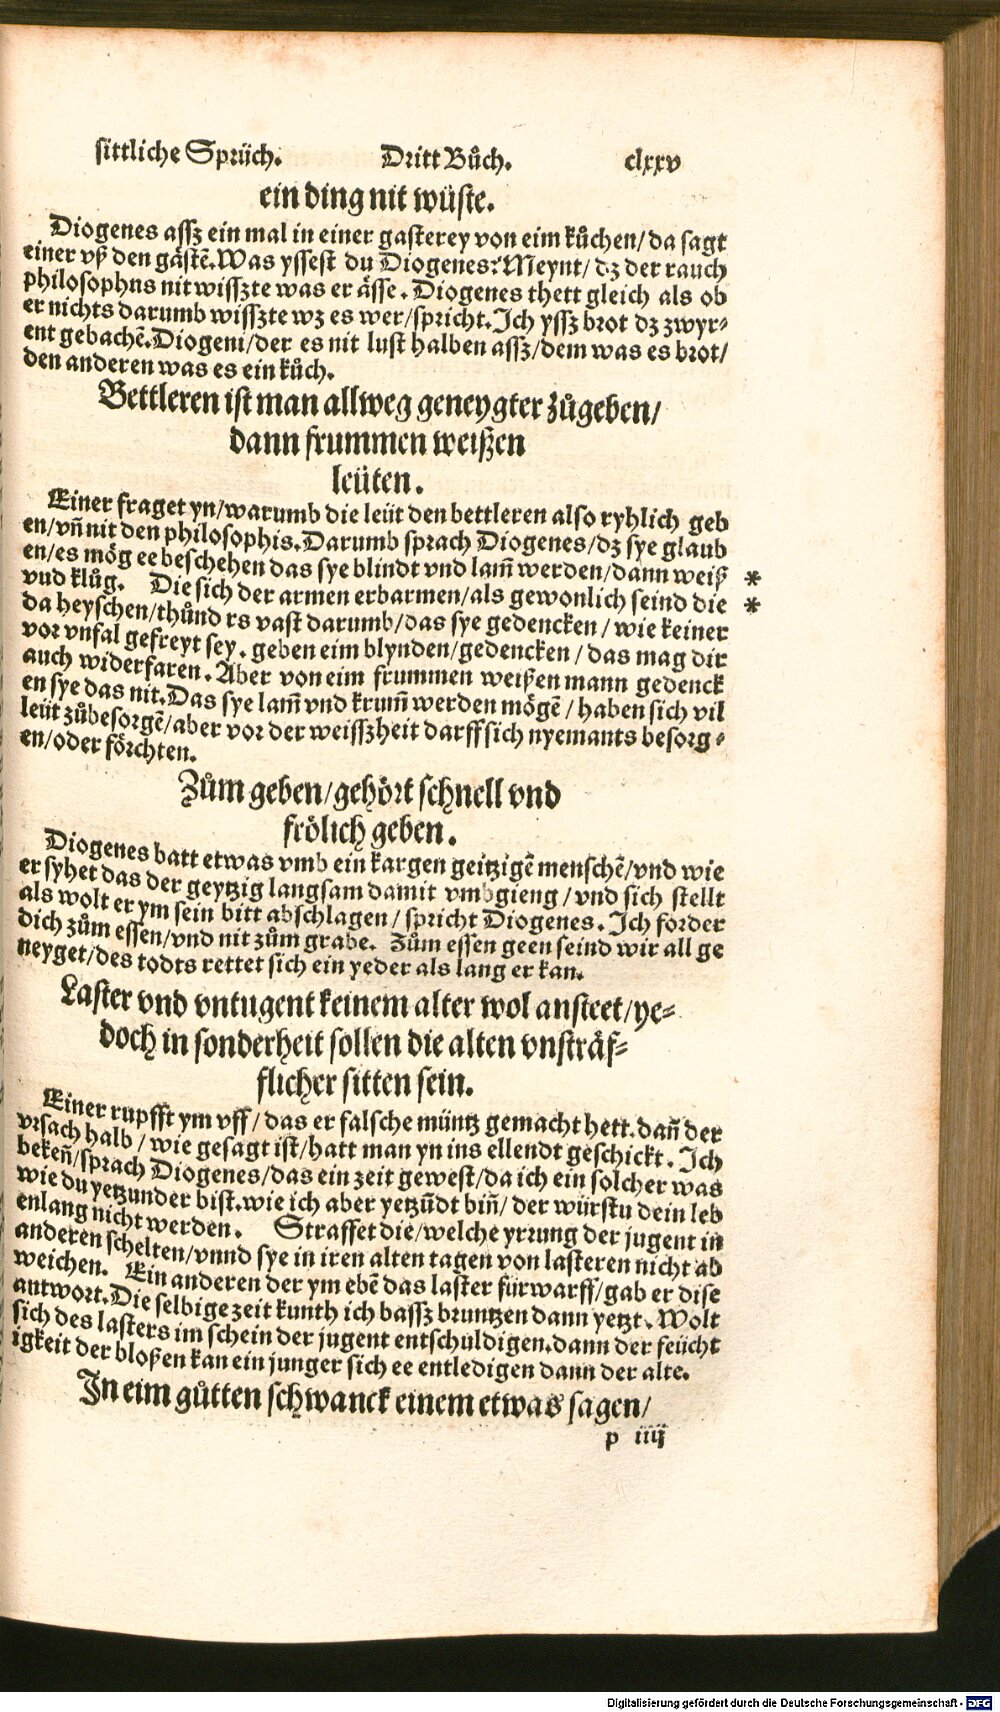 sittliche Sprüch. Dritt Bůch. clxxv
ein ding nit wüste.
Diogenes assz ein mal in einer gasterey von eim kůchen/da sagt
einer vß den gästẽ.Was yssest du Diogenes? Meynt/dz der rauch
philosophus nit wisszte was er ässe. Diogenes thett gleich als ob
er nichts darumb wisszte wz es wer/spricht.Ich yssz brot dz zwyr⸗
ent gebachẽ.Diogeni/der es nit lust halben assz/dem was es brot/
den anderen was es ein kůch.
Bettleren ist man allweg geneygter zůgeben/
dann frummen weißen
leüten.
Einer fraget yn/warumb die leüt den bettleren also ryhlich geb
en/vñ nit den philosophis.Darumb sprach Diogenes/dz sye glaub
en/es mög ee beschehen das sye blindt vnd lam̃ werden/dann weiß *
vnd klůg. Die sich der armen erbarmen/als gewonlich seind die *
da heyschen/thůnd es vast darumb/das sye gedencken/wie keiner
vor vnfal gefreyt sey. geben eim blynden/gedencken/das mag dir
auch widerfaren. Aber von eim frummen weißen mann gedenck
en sye das nit.Das sye lam̃ vnd krum̃ werden mögẽ/haben sich vil
leüt zůbesorgẽ/aber vor der weisszheit darff sich nyemants besorg⸗
en/oder förchten.
Zům geben/gehört schnell vnd
frölich geben.
Diogenes batt etwas vmb ein kargen geitzigẽ menschẽ/vnd wie
er syhet das der geytzig langsam damit vmbgieng/vnd sich stellt
als wolt er ym sein bitt abschlagen/spricht Diogenes. Ich forder
dich zům essen/vnd nit zům grabe. Zům essen geen seind wir all ge
neyget/des todts rettet sich ein yeder als lang er kan.
Laster vnd vntugent keinem alter wol ansteet/ye⸗
doch in sonderheit sollen die alten vnsträf⸗
flicher sitten sein.
Einer rupfft ym vff/das er falsche müntz gemacht hett.dañ der
vrsach halb/wie gesagt ist/hatt man yn ins ellendt geschickt. Ich
bekeñ/sprach Diogenes/das ein zeit gewest/da ich ein solcher was
wie du yetzunder bist.wie ich aber yetzũdt biñ/der würstu dein leb
enlang nicht werden. Straffet die/welche yrrung der jugent in
anderen schelten/vnnd sye in iren alten tagen von lasteren nicht ab
weichen. Ein anderen der ym ebẽ das laster fürwarff/gab er dise
antwort.Die selbige zeit kunth ich bassz bruntzen dann yetzt. Wolt
sich des lasters im schein der jugent entschuldigen.dann der feücht
igkeit der bloßen kan ein junger sich ee entledigen dann der alte.
In eim gůtten schwanck einem etwas sagen/
p iiij
Digitalisierung gefördert durch die Deutsche Forschungsgemeinschaft - DFG